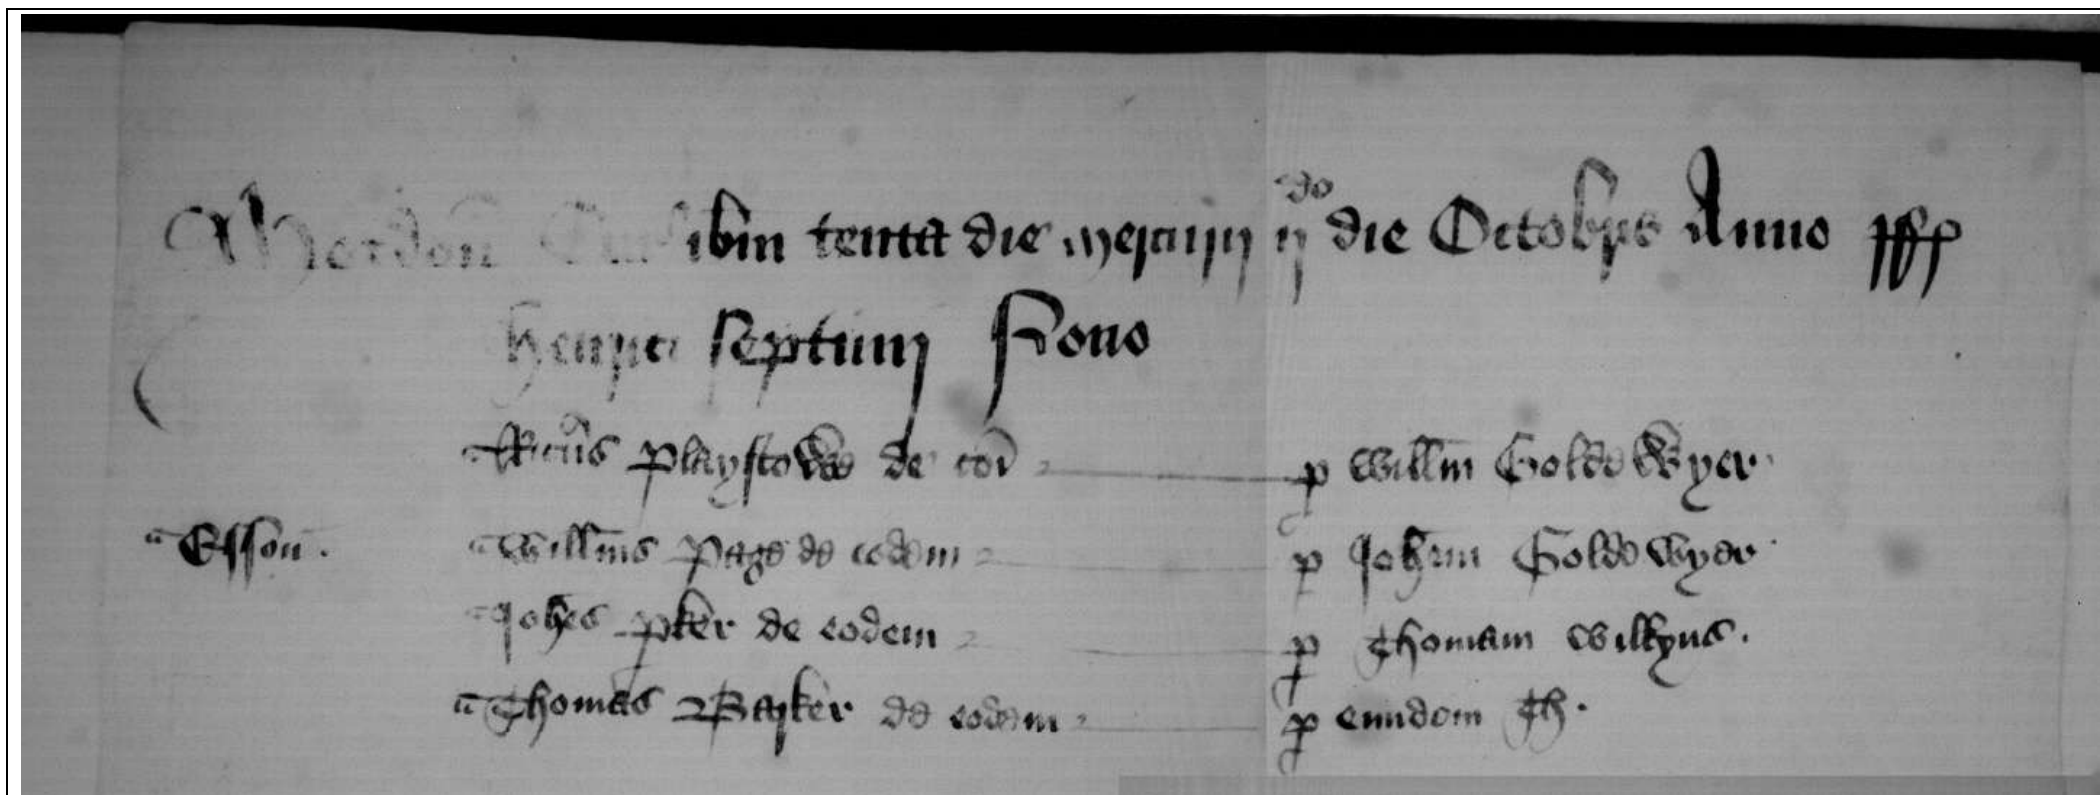 Mordon Cur ibm tenta die mercurij ijdo die Octobris Anno rr
henrici septimi Nono
Ricus Playstowe de coi p Willm Goldewyer
Esson. Willms Page de eodem p Johem Goldewyer
Johes pker de eodem p Thomam Wilkyns.
Thomas Barker de eodem p eundem Th.